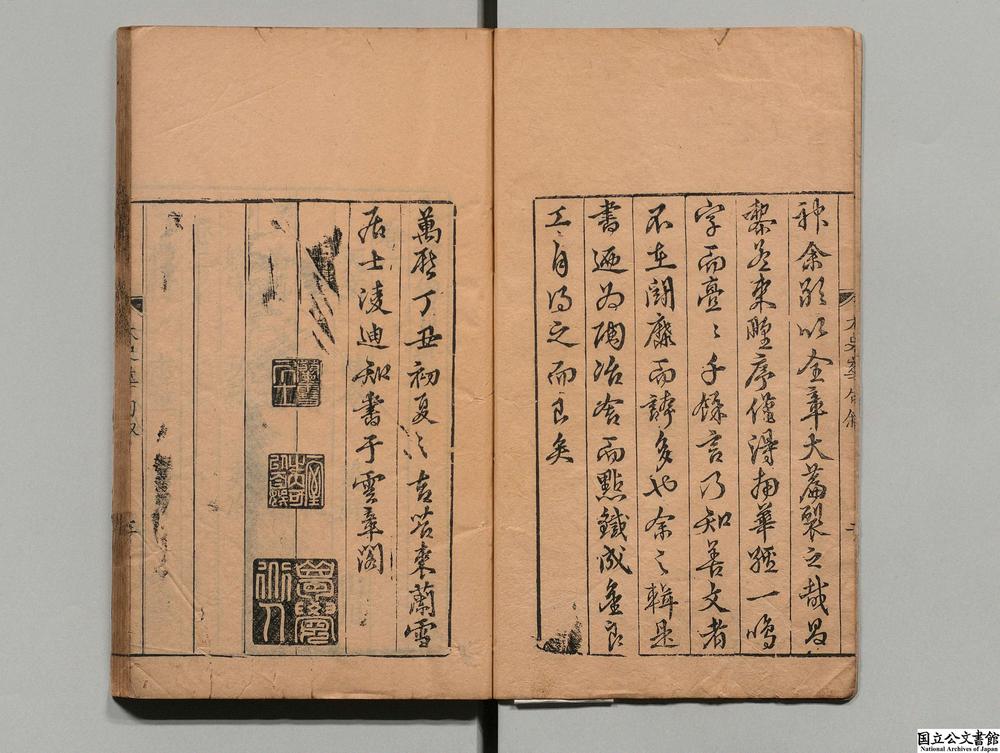 余欲以全章大篇裂之哉昌
黎盖東野序僅得拈華經一鳴
字而亹〻千餘言乃知善文者
不在閎靡而誇多也余之輯是
書遞爲陶冶含而點鐵成金良
工自得之而已矣
萬曆丁丑初夏之吉苕東蘭雪
居士凌迪知書于雲章閣
国立公文書館
National Archives of Japan